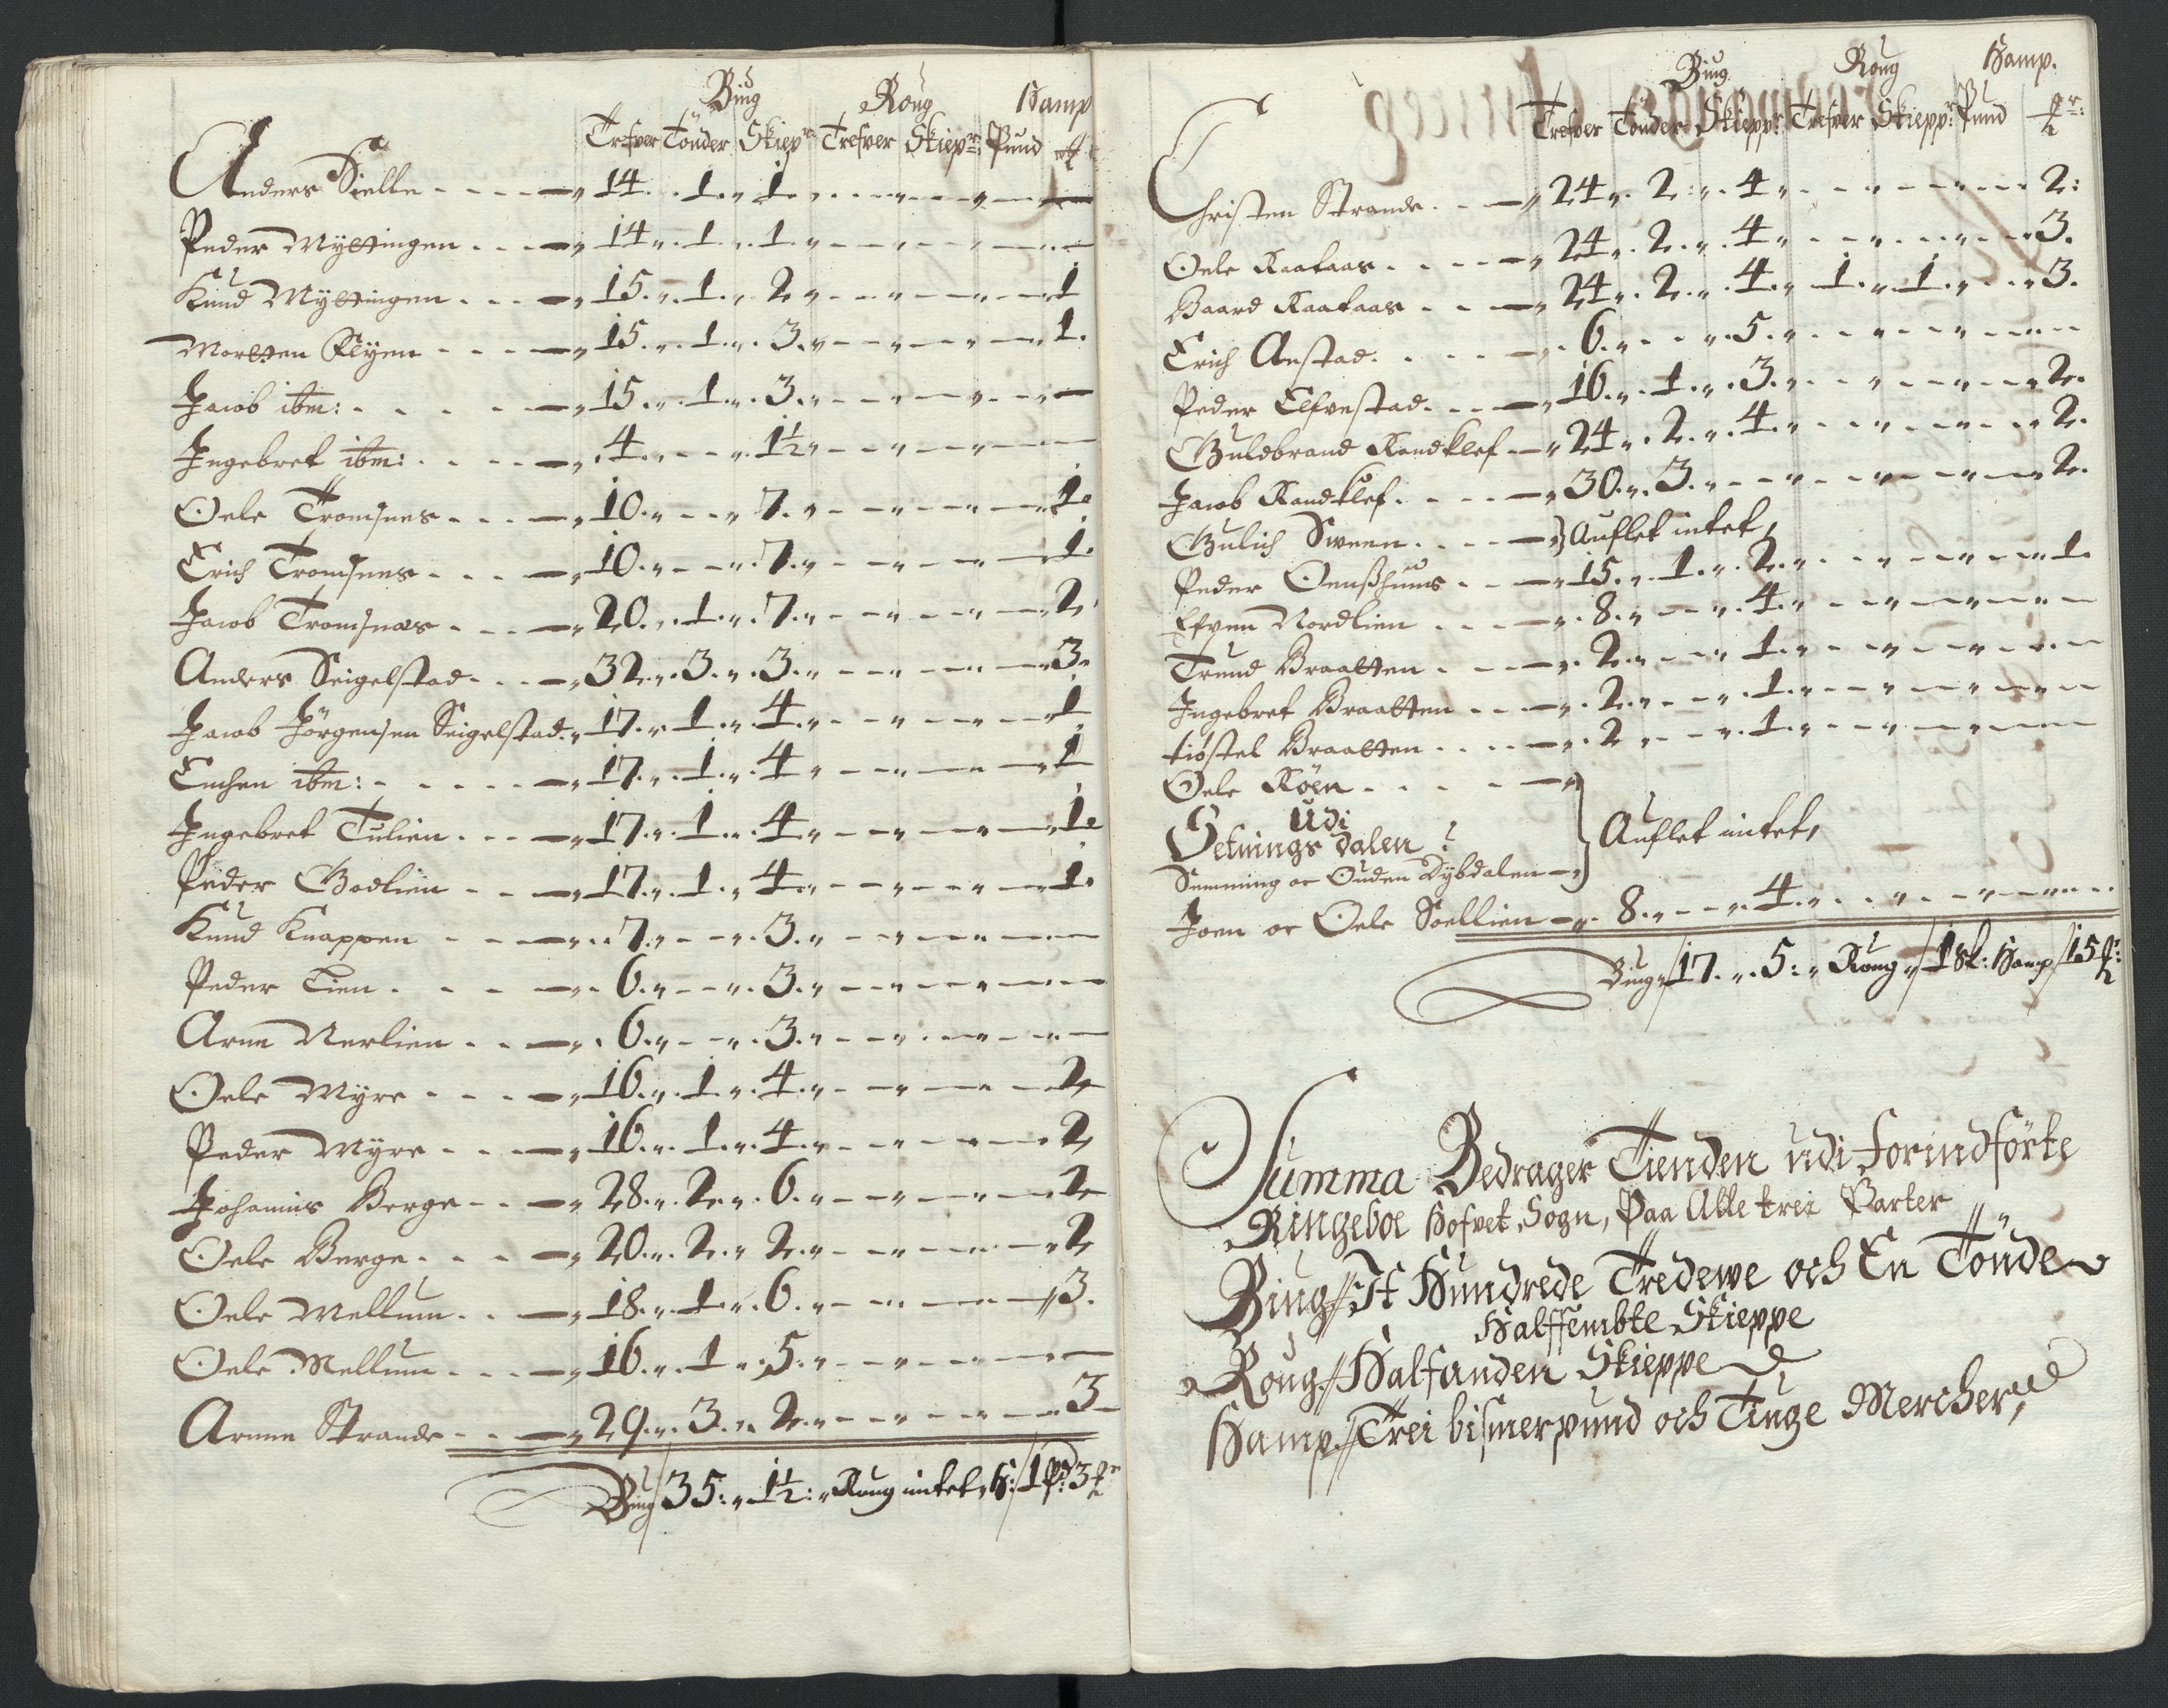 Biug Roug Hamp
Trefver Tönder Skiepr Trefver Skiepr: Pund
Anders Sielle - - - - 14 . 1 . 1 .
Peder Myttingen . . . 14 . 1 . 1 .
Knud Myttingen . . . 15 . 1 . 2 - - - 1
Mortten Flyen - - - 15 . 1 . 3 . - - - 1.
Jacob ibm: . . . . 15 . 1 . 3 .
Ingebret ibm: . . . . 4 . - - 1½
Oele Tromsnes - - - 10 . - - 7 . - - - 1.
Erich Tromsnes . . . 10 . - - 7 . - - - 1.
Jacob Tromsnæs . . . 20 . 1 . 7 . - - - 2
Anders Seigelstad . . . 32 . 3 . 3 . - - - 3.
Jacob Jörgensen Seigelstad . 17 . 1 . 4 . - - - 1
Enchen ibm: . . . . 17 . 1 . 4 - - - 1
Ingebret Tulien . . . 17 . 1 . 4 . - - - 1.
Peder Godlien - - - 17 . 1 . 4 . - - - 1.
Knud Knappen - - - 7 . - - 3 .
Peder Lien . . . 6 . - - 3 .
Arne Nerlien . . . 6 . - - 3 .
Oele Myre . . . 16 . 1 . 4 . - - - 2
Peder Myre . . . 16 . 1 . 4 . - - - 2
Johannis Berge - - - 28 . 2 . 6 . - - - 2
Oele Berge . . . 20 . 2 . 2 . - - - 2
Oele Mellum . . . 18 . 1 . 6 . - - - 3.
Oele Mellum . . . 16 . 1 . 5 .
Arnne Strande - - - 29 . 3 . 2 . - - - 3
Biug 35: 1½: Roug intet, H: 1 Pd: 3
Biug Roug Hamp.
Trefver Tönder Skiepp: Trefver Skiepp: Pund
Christen Strande . - - 24 . 2 : 4 - - - 2:
Oele Kaataas . . . 24 . 2 . 4 - - - 3.
Baard Kaataas - - - 24 . 2 . 4 . 1 . 1 . - - 3.
Erich Austad . . . 6 . - - 5 .
Peder Elfvestad . . . 16 . 1 . 3 . - - - 2.
Guldbrand Randklef - 24 . 2 . 4 . - - - 2.
Jacob Randklef . . . 30 . 3 . - - - 2.
Gulich Sween . . . Auflet intet,
Peder Oenßhuus . . . 15 . 1 . 2 . - - - 1.
Efven Nordlien . . . 8 . - - 4 .
Trund Braatten . . . 2 . - - 1 .
Ingebret Braatten - - - 2 . - - 1 .
tiöstel Braatten . . . 2 - - 1 .
Oele Röen . . .
Udi
Setnings dalen
Semming oc Ouden Dybdalen - Auflet intet,
Joen oc Oele Soellien - 8 . - - 4 .
Biug 17 . 5: Roug 1 sk: Hamp 15
Summa Bedrager Tienden udi forindförte
Ringeboe Hofvet Sogn, Paa Alle trei Parter
Biug // It Hundrede Tredewe och En Tönde
Halffembte Skieppe
Roug // Halfanden Skieppe
Hamp // Trei bismerpund och Tiuge Mercher,